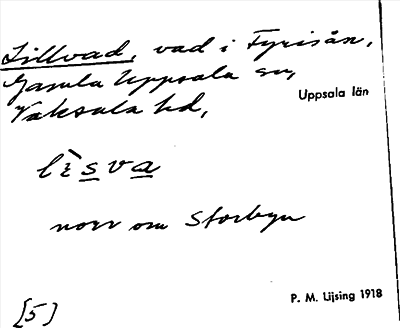 Lillvad, vad i Fyrisån,
Gamla Uppsala sn,
Vaksala hd,
Uppsala län
lìsva
norr om Storbyn
P. M. Lijsing 1918
[5]